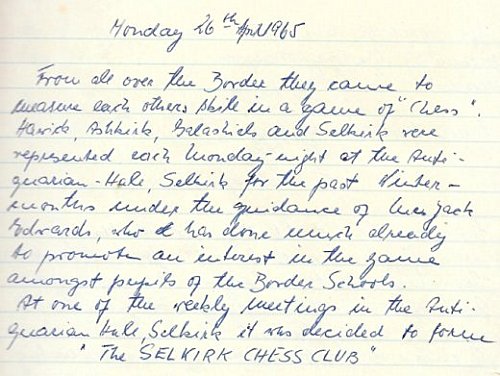 Monday 26th April 1965
From all over the Border they came to
measure each others skill in a game of "Chess".
Hawick, Ashkirk, Galashiels and Selkirk were
represented each Monday-night at the Anti-
quarian-Hall, Selkirk for the past Winter-
months under the guidance of Jack
Edwards, who has done much already
to promote an interest in the game
amongst pupils of the Border Schools.
At one of the weekly meetings in the Anti-
quarian Hall, Selkirk it was decided to form
"The SELKIRK CHESS CLUB"